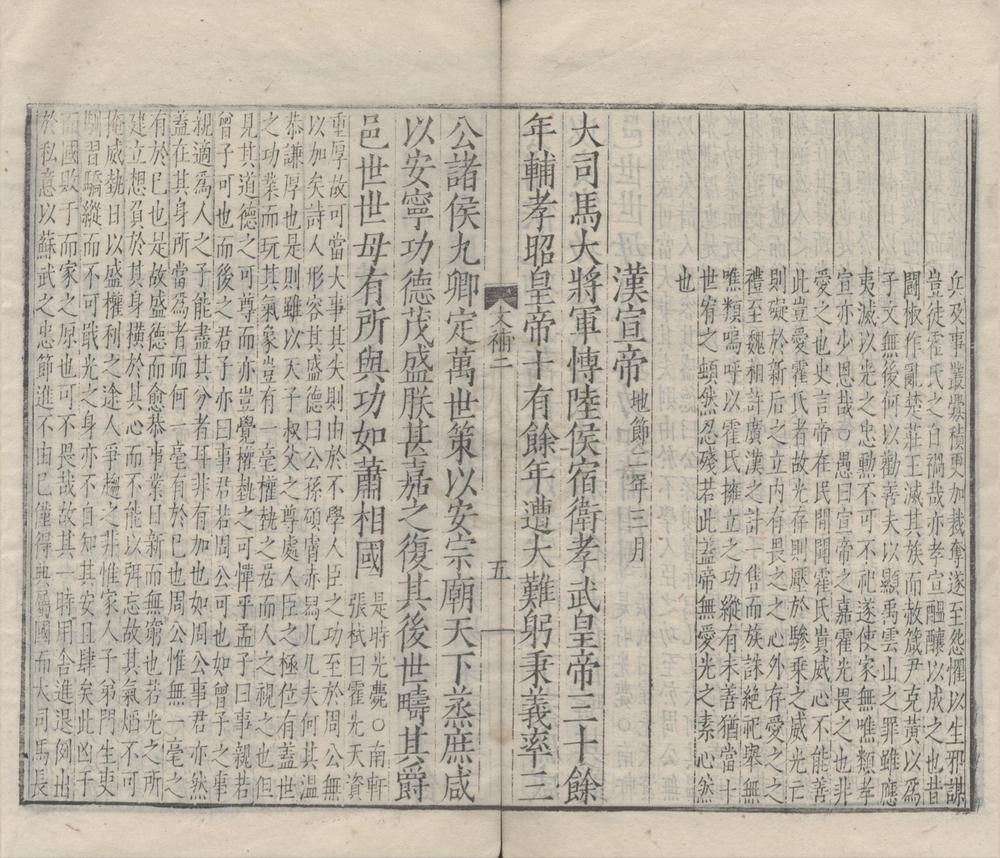 兵及事叢釁積更加裁奪遂至怨懼以生邪謀
豈徒霍氏之自禍哉亦孝宣醞釀以成之也昔
鬬椒作亂楚莊王滅其族而赦箴尹克黃以爲
子文無後何以勸善夫以顯禹雲山之罪雖應
夷滅以光之忠勳不可不祀遂使家無唯類孝
宣亦少恩哉○愚曰宣帝之嘉霍光畏之也非
愛之也史言帝在民間聞霍氏貴威心不能善
此豈愛霍氏者故光存則壓於驂乘之威光亡
則礙於新后之立内有畏之之心外存愛之之
禮至魏相許廣漢之計一售而族誅絶祀舉無
噍類嗚呼以霍氏擁立之功縱有未善猶當十
世宥之頓然忍殘若此蓋帝無愛光之素心然
也
漢宣帝地節二年三月
大司馬大將軍博陸侯宿衛孝武皇帝三十餘
年輔孝昭皇帝十有餘年遭大難躬秉義率三
文補二
五
公諸侯九卿定萬世策以安宗廟天下蒸庶咸
以安寧功德茂盛朕甚嘉之復其後世疇其爵
邑世世毋有所與功如蕭相國
是時光薨○南軒
張栻曰霍光天資
重厚故可當大事其失則由於不學人臣之功至於周公無
以加矣詩人形容其盛德曰公孫碩膚赤舄几几夫何其溫
恭謙厚也是則雖以天子叔父之尊處人臣之極位有蓋世
之功業而玩其氣象豈有一毫權埶之居而人之視之也但
見其道德之可尊而亦豈覺權埶之可憚乎孟子曰事親若
曾子可也而後之君子亦曰事君若周公可也如曾子之事
親適爲人之子能盡其分者耳非有加也如周公事君亦然
蓋在其身所當爲者而何一毫有於己也周公惟無一毫之
有於己也是故盛德而愈恭事業日新而無窮也若光之所
建立想負於其身横於其心而不能以弭忘故其氣熖不可
掩威埶日以盛權利之途人爭趨之非惟家人子弟門生吏
馴習驕縱而不可戢光之身亦不自知其安且肆矣此凶于
而國敗于而家之原也可不畏哉故其一時用舍進退例出
於私意以蘇武之忠節進不由己僅得典屬國而大司馬長